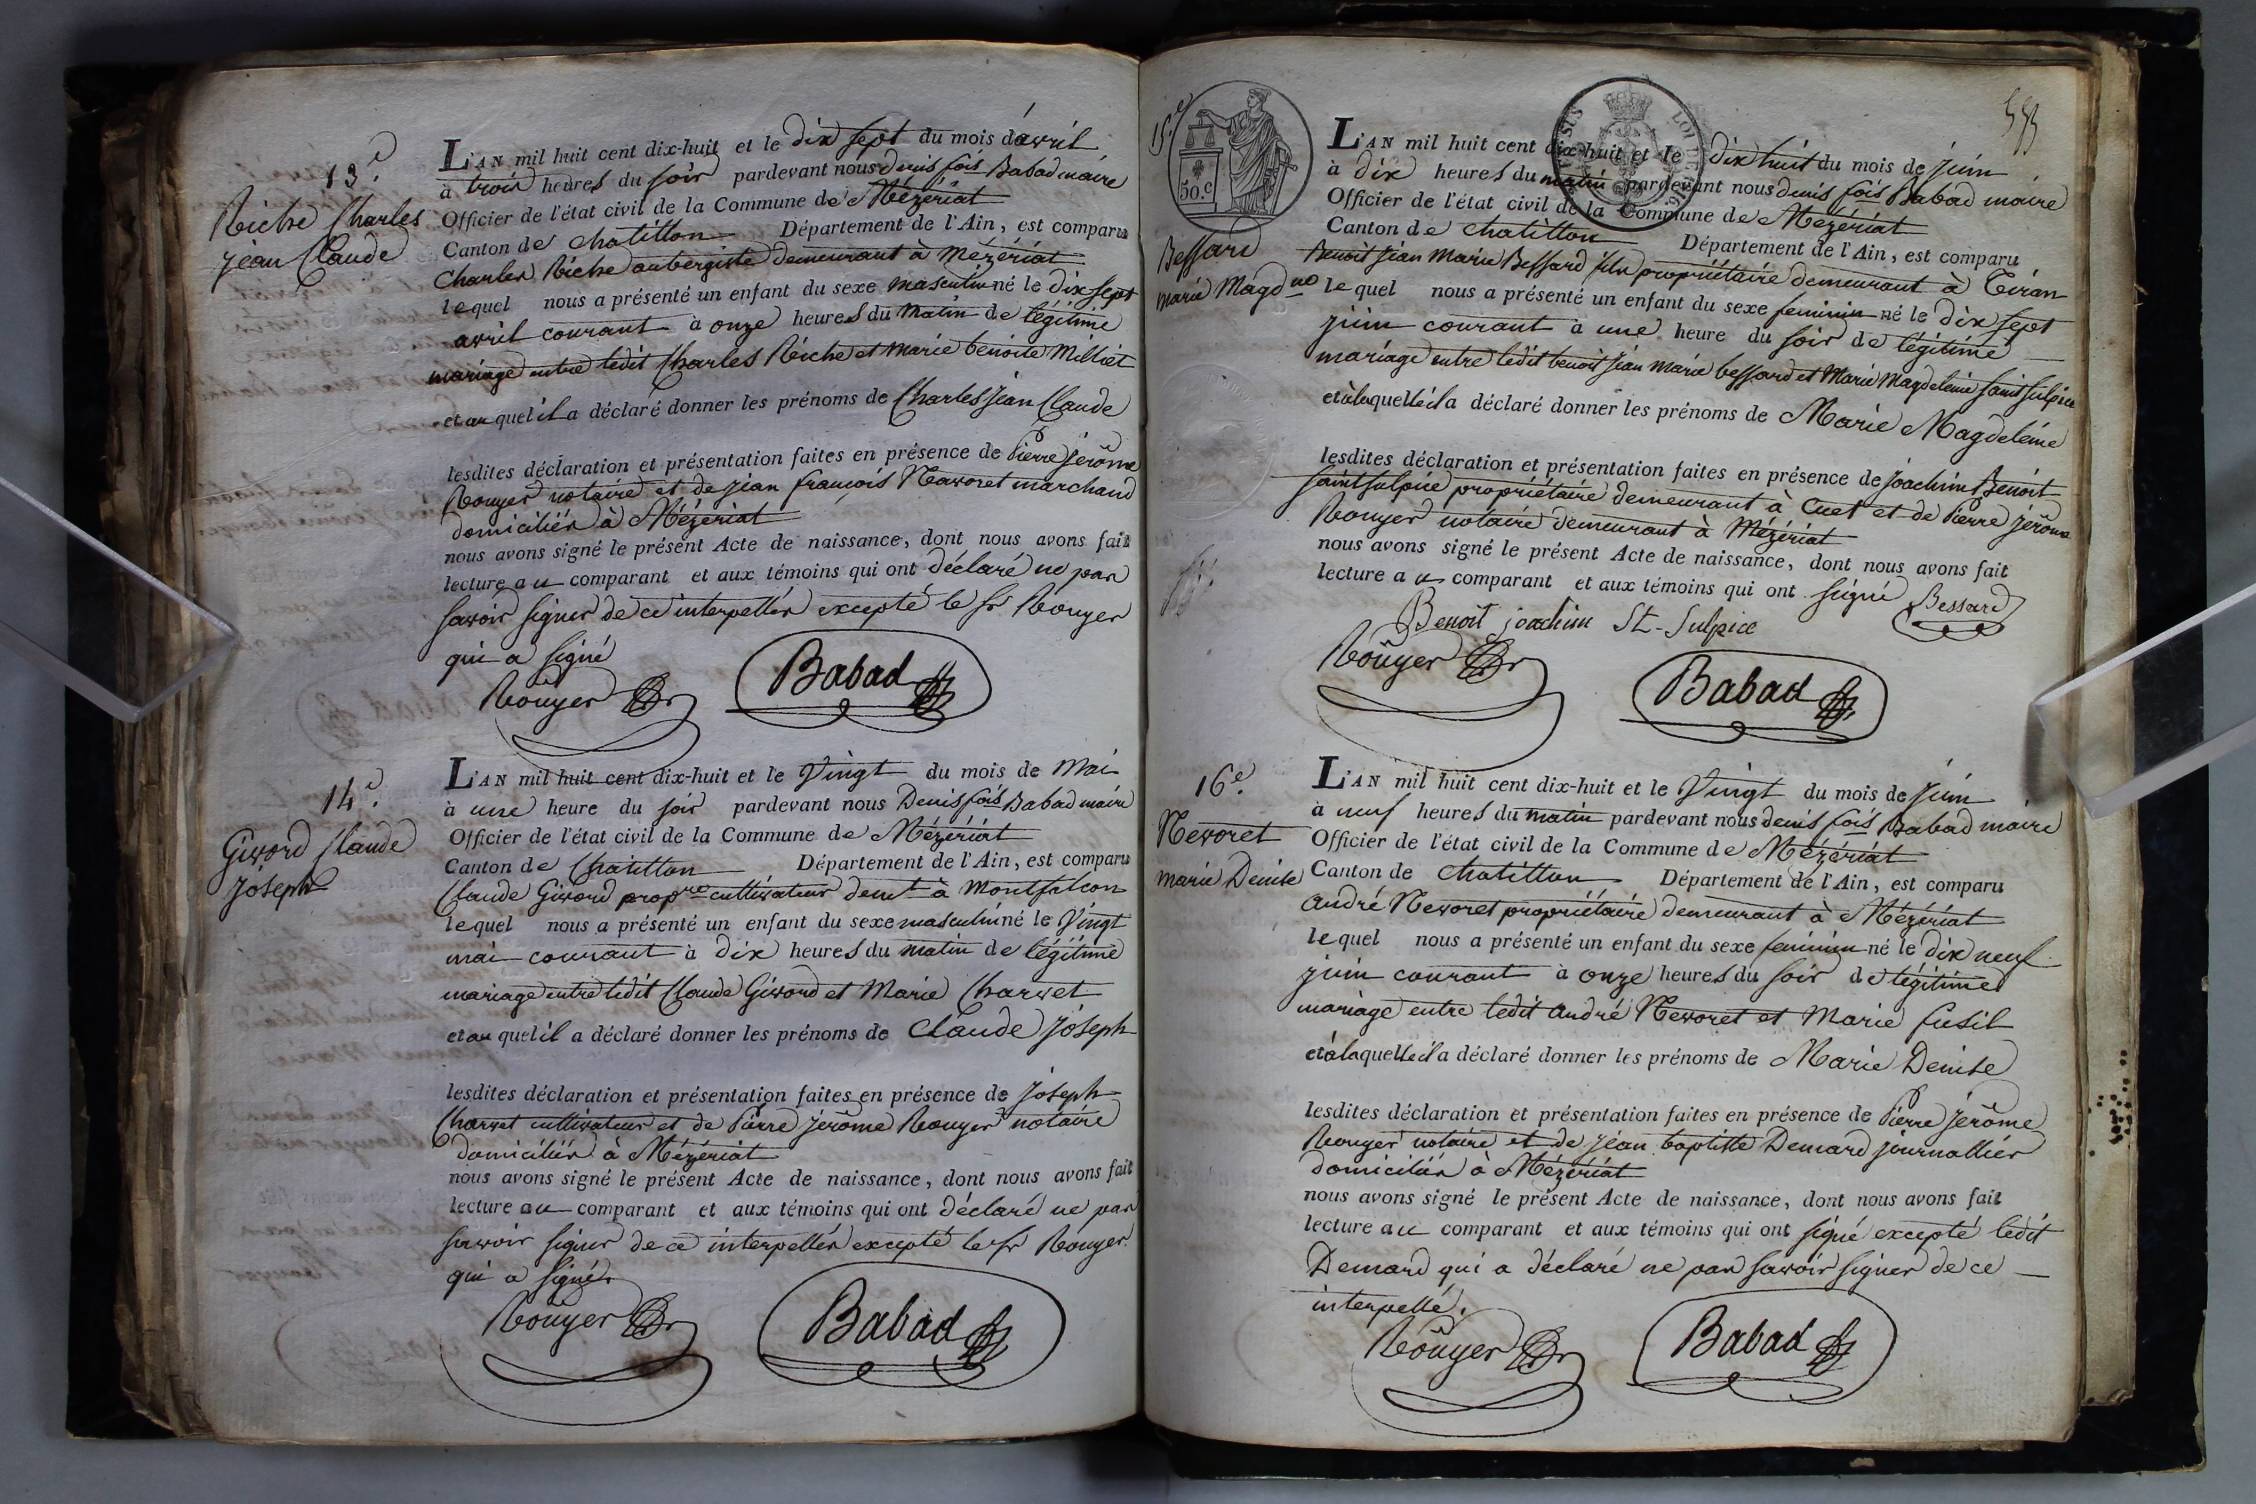 13.e
Riche Charles
jean Claude
L'AN mil huit cent dix-huit et le dix sept du mois d'avril
à trois heures du soir pardevant nous denis fois Babad maire
Officier de l'état civil de la Commune de Mézériat
Canton de chatillon Département de l'Ain, est comparu
Charles Riche aubergiste demeurant à Mézériat
lequel nous a présenté un enfant du sexe masculin né le dix sept
avril courant à onze heures du matin de légitime
mariage entre ledit Charles Riche et marie benoite Milliet
et au quel il a déclaré donner les prénoms de Charles jean Claude
lesdites déclaration et présentation faites en présence de Pierre jérôme
Rouyer notaire et de jean françois Navoret marchand
domiciliés à Mézériat
nous avons signé le présent Acte de naissance, dont nous avons fait
lecture au comparant et aux témoins qui ont déclaré ne pas
savoir signer de ce interpellés excepté le sr Rouyer
qui a signé
Rouyer
Babad
14.e
Givord Claude
joseph
L'AN mil huit cent dix-huit et le Vingt du mois de mai
à une heure du soir pardevant nous Denis fois Babad maire
Officier de l'état civil de la Commune de Mézériat
Canton de Chatillon Département de l'Ain, est comparu
Claude Givord propre cultivateur demt à Montfalcon
lequel nous a présenté un enfant du sexe masculin né le Vingt
mai courant à dix heures du matin de légitime
mariage entre ledit Claude Givord et Marie Charvet
et au quel il a déclaré donner les prénoms de Claude joseph
lesdites déclaration et présentation faites en présence de joseph
Charvet cultivateur et de Pierre jérôme Rouyer notaire
domiciliés à Mézériat
nous avons signé le présent Acte de naissance, dont nous avons fait
lecture au comparant et aux témoins qui ont déclaré ne pas
savoir signer de ce interpellés excepté le sr Rouyer
qui a signé
Rouyer
Babad
15.e
50.c
Bessard
marie Magdne
L'AN mil huit cent dix-huit et le dix huit du mois de juin
à dix heures du matin pardevant nous denis fois Babad maire
Officier de l'état civil de la Commune de Mézériat
Canton de chatillon Département de l'Ain, est comparu
Benoit jean marie Bessard fils propriétaire demeurant à Tiran
lequel nous a présenté un enfant du sexe feminin né le dix sept
juin courant à une heure du soir de légitime
mariage entre ledit benoit jean marie bessard et Marie Magdeleine saint sulpice
et à laquelle il a déclaré donner les prénoms de Marie Magdeleine
lesdites déclaration et présentation faites en présence de joachim Benoit
saint sulpice propriétaire demeurant à Cuet et de Pierre jérôme
Rouyer notaire demeurant à Mézériat
nous avons signé le présent Acte de naissance, dont nous avons fait
lecture au comparant et aux témoins qui ont signé Bessard
Benoit joachim St-Sulpice
Rouyer
Babad
16.e
Nevoret
marie Denise
L'AN mil huit cent dix-huit et le Vingt du mois de juin
à neuf heures du matin pardevant nous denis fois Babad maire
Officier de l'état civil de la Commune de Mézériat
Canton de chatillon Département de l'Ain, est comparu
andré Nevoret propriétaire demeurant à Mézériat
lequel nous a présenté un enfant du sexe feminin né le dix neuf
juin courant à onze heures du soir de légitime
mariage entre ledit andré Nevoret et Marie fusil
et à laquelle il a déclaré donner les prénoms de Marie Denise
lesdites déclaration et présentation faites en présence de Pierre jérôme
Rouyer notaire et de jean baptiste Demard journallier
domiciliés à Mézériat
nous avons signé le présent Acte de naissance, dont nous avons fait
lecture au comparant et aux témoins qui ont signé excepté ledit
Demard qui a déclaré ne pas savoir signer de ce
interpellé.
Rouyer
Babad